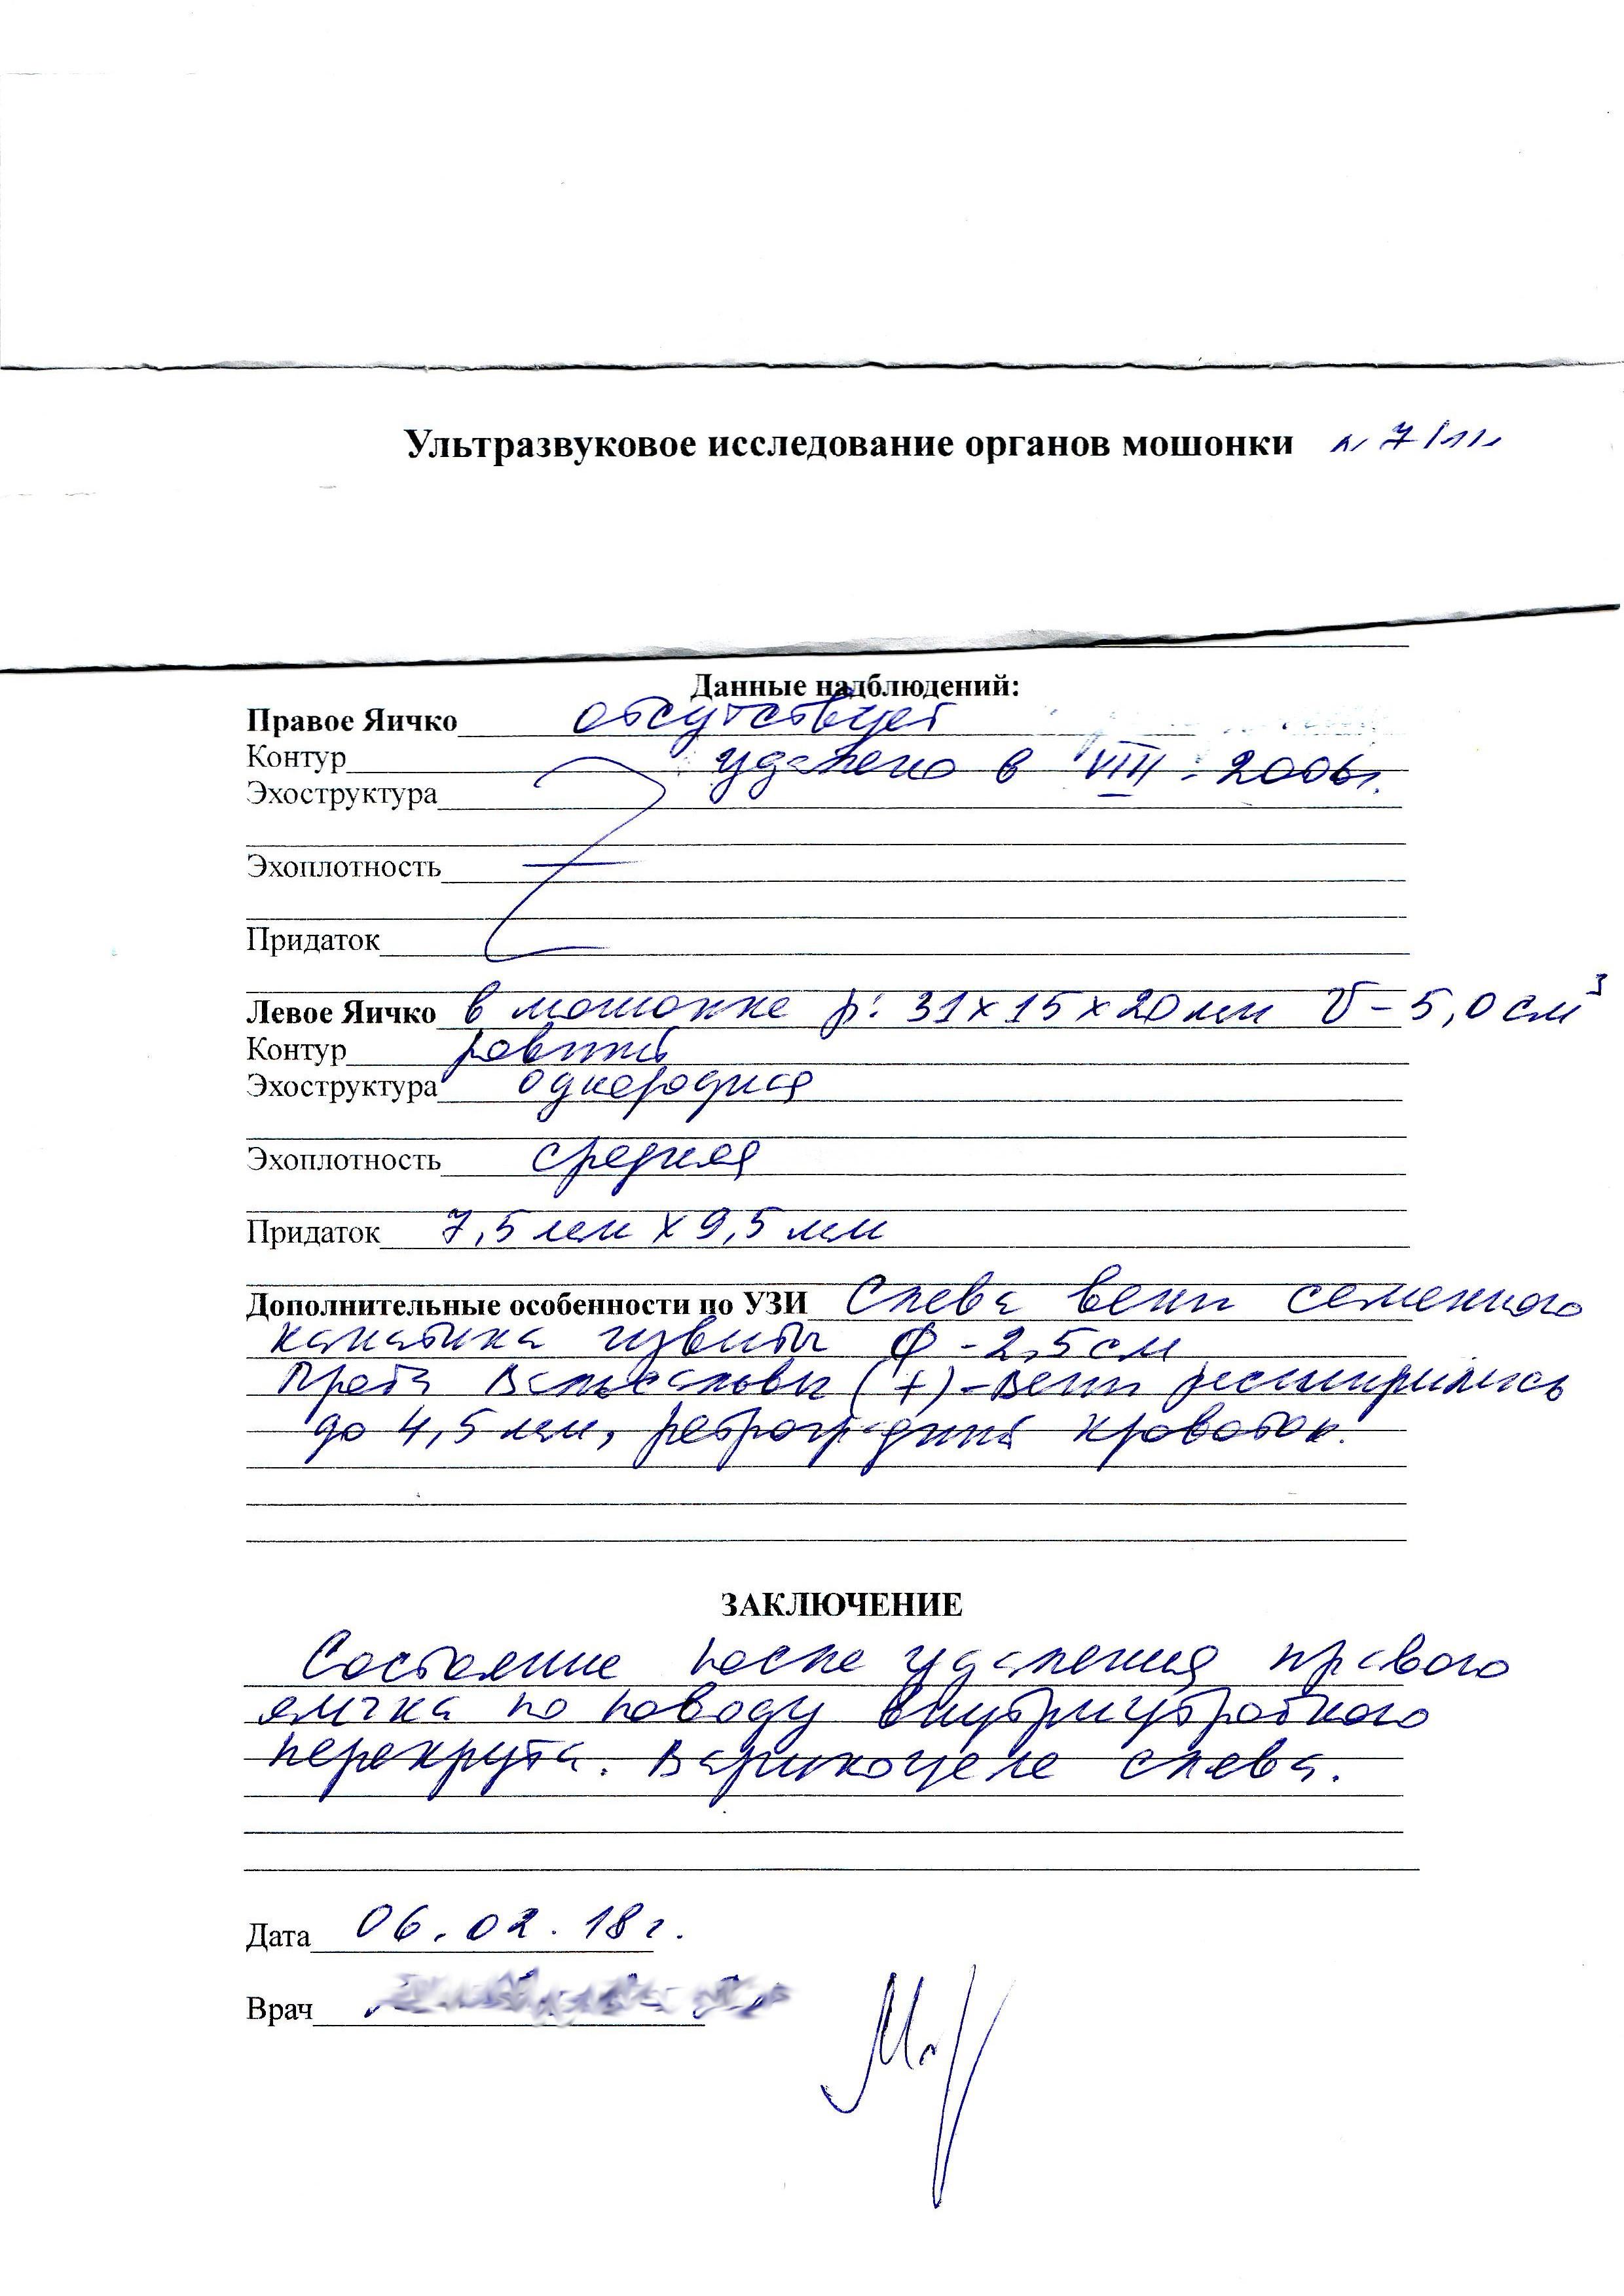 Ультразвуковое исследование органов мошонки
Данные надблюдений:
Правое Яичко отсутствует
Контур удалено в VIII - 2006г.
Эхоструктура
Эхоплотность
Придаток
Левое Яичко в мошонке р: 31х15х20мм V - 5,0 см³
Контур ровный
Эхоструктура однородная
Эхоплотность средняя
Придаток 7,5 мм х 9,5 мм
Дополнительные особенности по УЗИ Слева вены семенного
канатика извиты Ф - 2,5 см
Проба Вальсальвы (+) - вены расширились
до 4,5 мм, ретроградный кровоток.
ЗАКЛЮЧЕНИЕ
Состояние после удаления правого
яичка по поводу внутриутробного
перекрута. Варикоцеле слева.
Дата 06.02.18г.
Врач